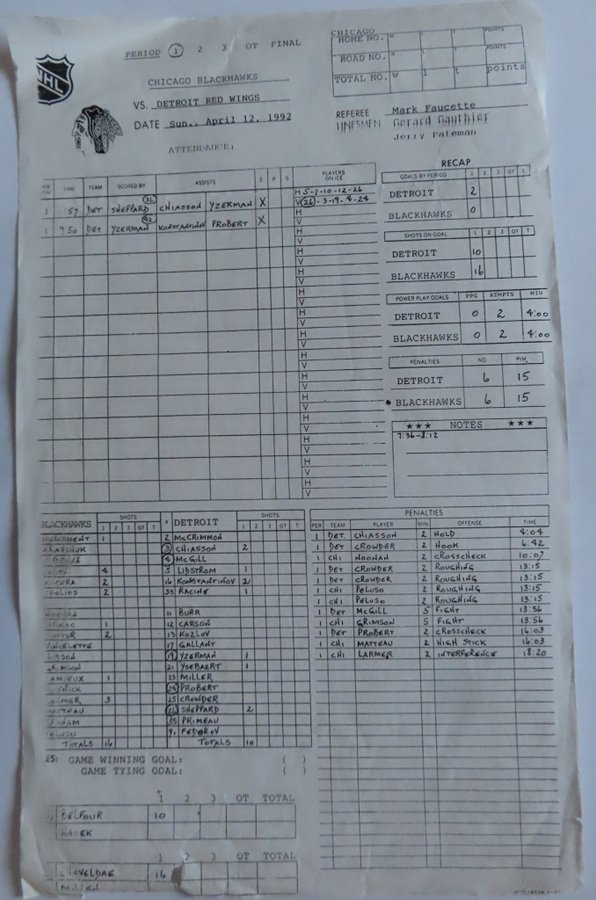 NHL
PERIOD 1 2 3 OT FINAL
CHICAGO BLACKHAWKS
VS. DETROIT RED WINGS
DATE Sun., April 12, 1992
ATTENDANCE:
CHICAGO
HOME NO. W L T POINTS
ROAD NO. W L T POINTS
TOTAL NO. W l t points
REFEREE Mark Faucette
LINESMEN Gerard Gauthier
Jerry Pateman
TIME TEAM SCORED BY ASSISTS E P S PLAYERS ON ICE
1 :57 DET SHEPPARD CHIASSON YZERMAN X H 5-7-10-12-26
V (26)-3-19-4-24
1 9:50 DET YZERMAN KONSTANTINOV PROBERT X H
V
RECAP
GOALS BY PERIOD 1 2 3 OT T
DETROIT 2
BLACKHAWKS 0
SHOTS ON GOAL 1 2 3 OT T
DETROIT 10
BLACKHAWKS 16
POWER PLAY GOALS PPG ATMPTS MIN
DETROIT 0 2 4:00
BLACKHAWKS 0 2 4:00
PENALTIES NO. PIM
DETROIT 6 15
BLACKHAWKS 6 15
★★★ NOTES ★★★
7:36-8:12
BLACKHAWKS SHOTS 1 2 3 OT T
MARCHMENT 1
KRAVCHUK
4
KUCERA 2
CHELIOS 2
1
2
VINCELETTE
GRIMSON
LEMIEUX 1
LARMER 3
MATTEAU
TOTALS 16
# DETROIT SHOTS 1 2 3 OT T
2 McCRIMMON
3 CHIASSON 2
4 McGILL
5 LIDSTROM 1
16 KONSTANTINOV 2
33 RACINE 1
11 BURR
12 CARSON
13 KOZLOV
17 GALLANT
19 YZERMAN 1
21 YSEBAERT 1
23 MILLER
24 PROBERT
25 CROWDER
26 SHEPPARD 2
55 PRIMEAU
91 FEDOROV
TOTALS 10
PENALTIES
PER TEAM PLAYER MIN OFFENSE TIME
1 DET CHIASSON 2 HOLD 4:04
1 DET CROWDER 2 HOOK 6:42
1 CHI NOONAN 2 CROSSCHECK 10:07
1 DET CROWDER 2 ROUGHING 13:15
1 DET CROWDER 2 ROUGHING 13:15
1 CHI PELUSO 2 ROUGHING 13:15
1 CHI PELUSO 2 ROUGHING 13:15
1 DET McGILL 5 FIGHT 13:56
1 CHI GRIMSON 5 FIGHT 13:56
1 DET PROBERT 2 CROSSCHECK 16:03
1 CHI MATTEAU 2 HIGH STICK 16:03
1 CHI LARMER 2 INTERFERENCE 18:20
GAME WINNING GOAL: ( )
GAME TYING GOAL: ( )
1 2 3 OT TOTAL
BELFOUR 10
HASEK
1 2 3 OT TOTAL
CHEVELDAE 16
MILLEN